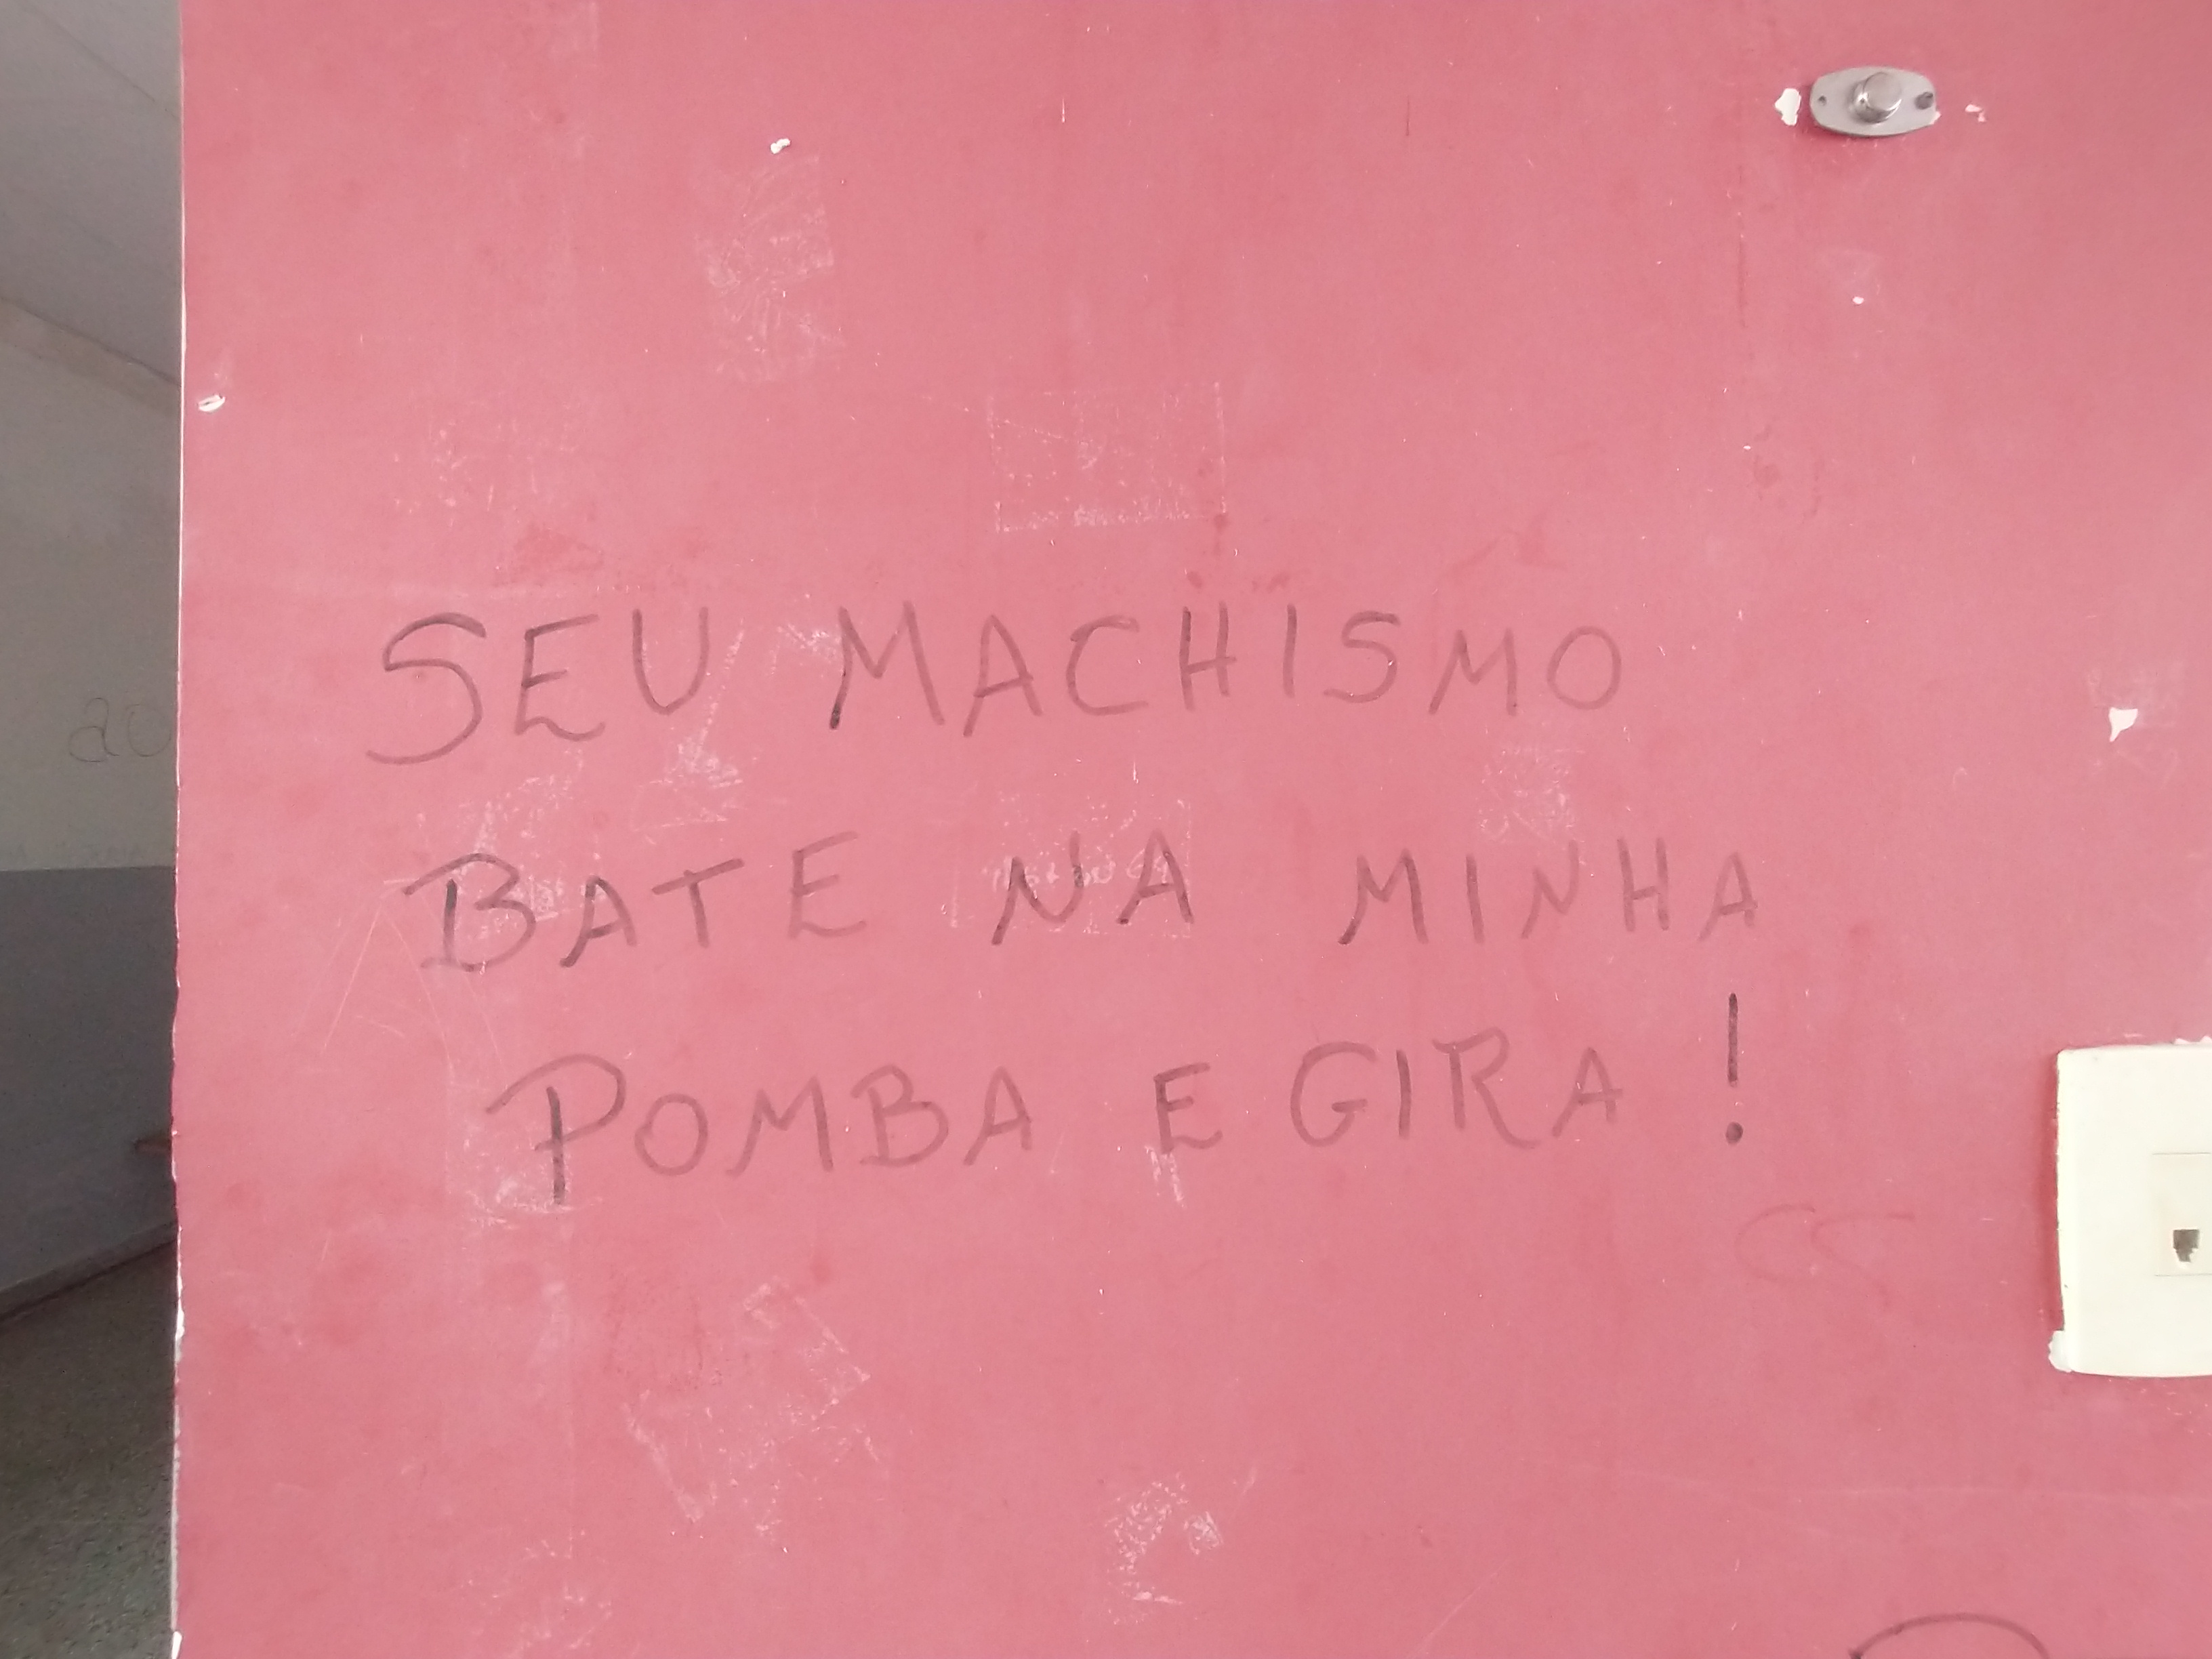 SEU MACHISMO
BATE NA MINHA
POMBA E GIRA!
ao